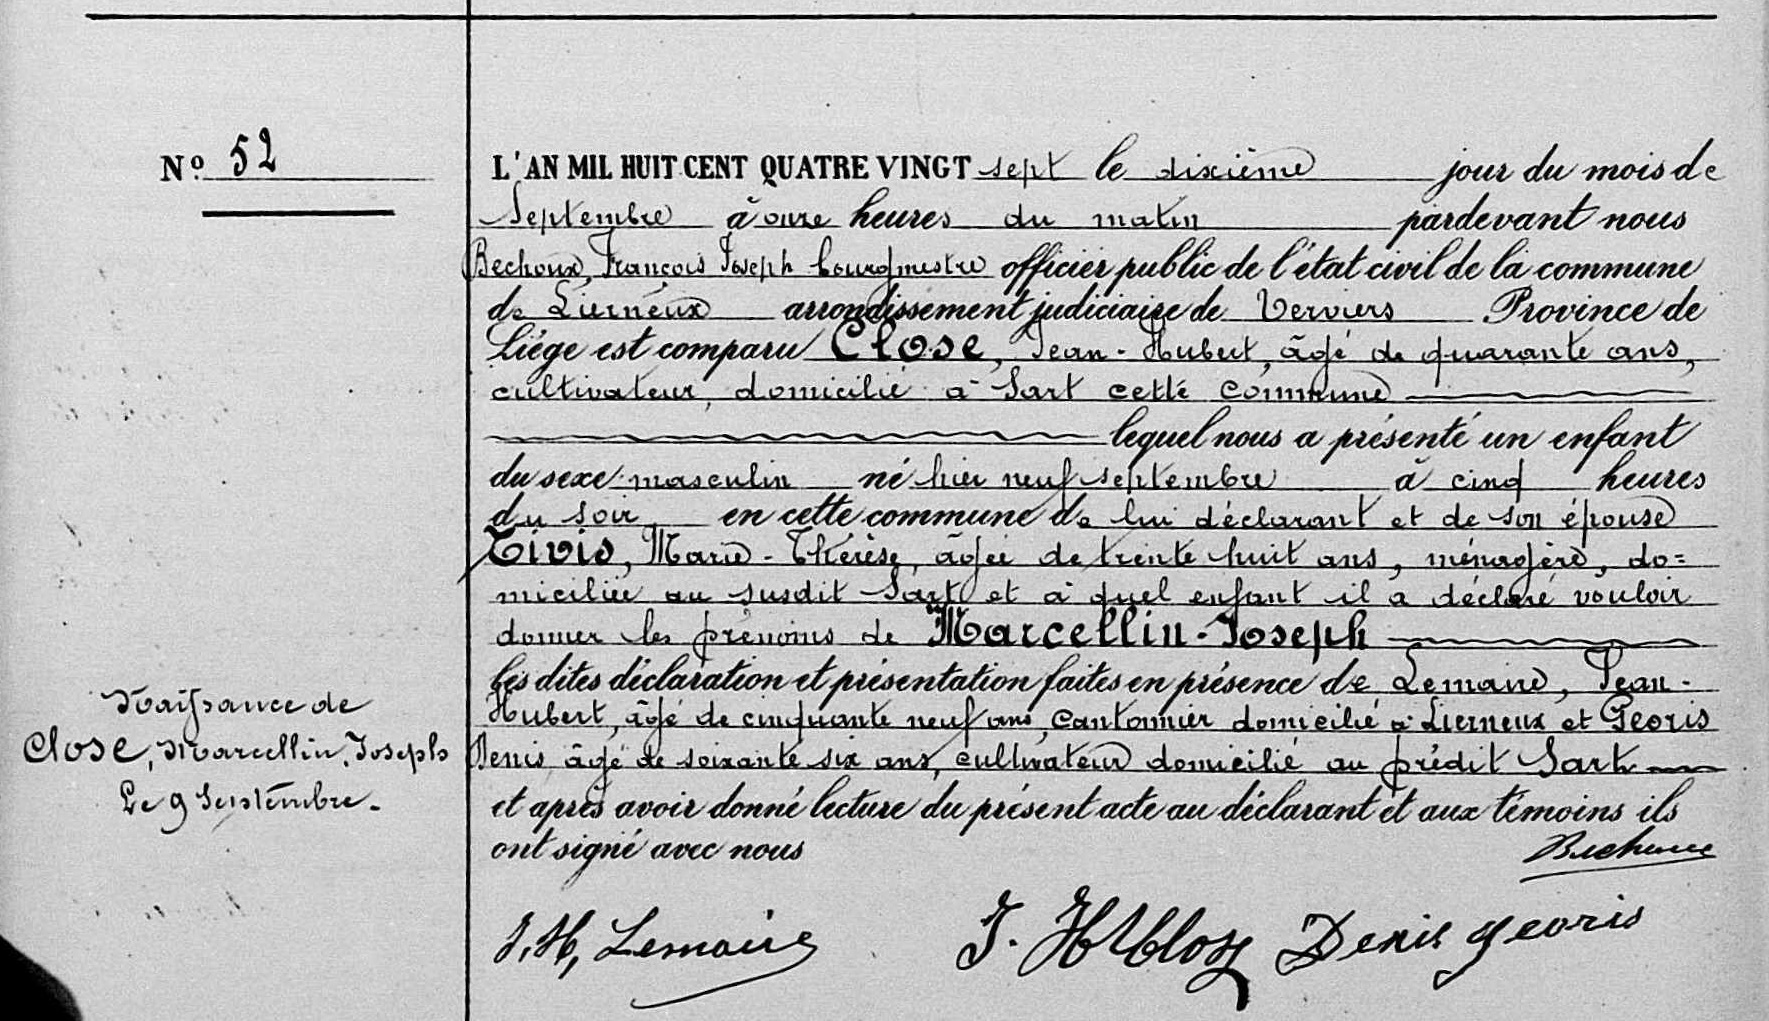 Nº 52
L'AN MIL HUIT CENT QUATRE VINGT sept le dixième jour du mois de
Septembre à onze heures du matin pardevant nous
Bechoux, François Joseph bourgmestre officier public de l'état civil de la commune
de Lierneux arrondissement judiciaire de Verviers Province de
Liége est comparu Close, Jean-Hubert, âgé de quarante ans,
cultivateur, domicilié à Sart cette commune
lequel nous a présenté un enfant
du sexe masculin né hier neuf septembre à cinq heures
du soir, en cette commune de lui déclarant et de son épouse
Tivis, Marie-Thérèse, âgée de trente huit ans, ménagère, do=
miciliée au susdit Sart et à quel enfant il a déclaré vouloir
donner les prénoms de Marcellin-Joseph
les dites déclaration et présentation faites en présence de Lemaire, Jean-
Hubert, âgé de cinquante neuf ans, cantonnier domicilié à Lierneux et Georis
Denis âgé de soixante six ans, cultivateur domicilié au prédit Sart
et après avoir donné lecture du présent acte au déclarant et aux témoins ils
ont signé avec nous
Bechoux
J. H. Lemaire J. H Close Denis georis
Naissance de
Close, Marcellin, Joseph
Le 9 Septembre.